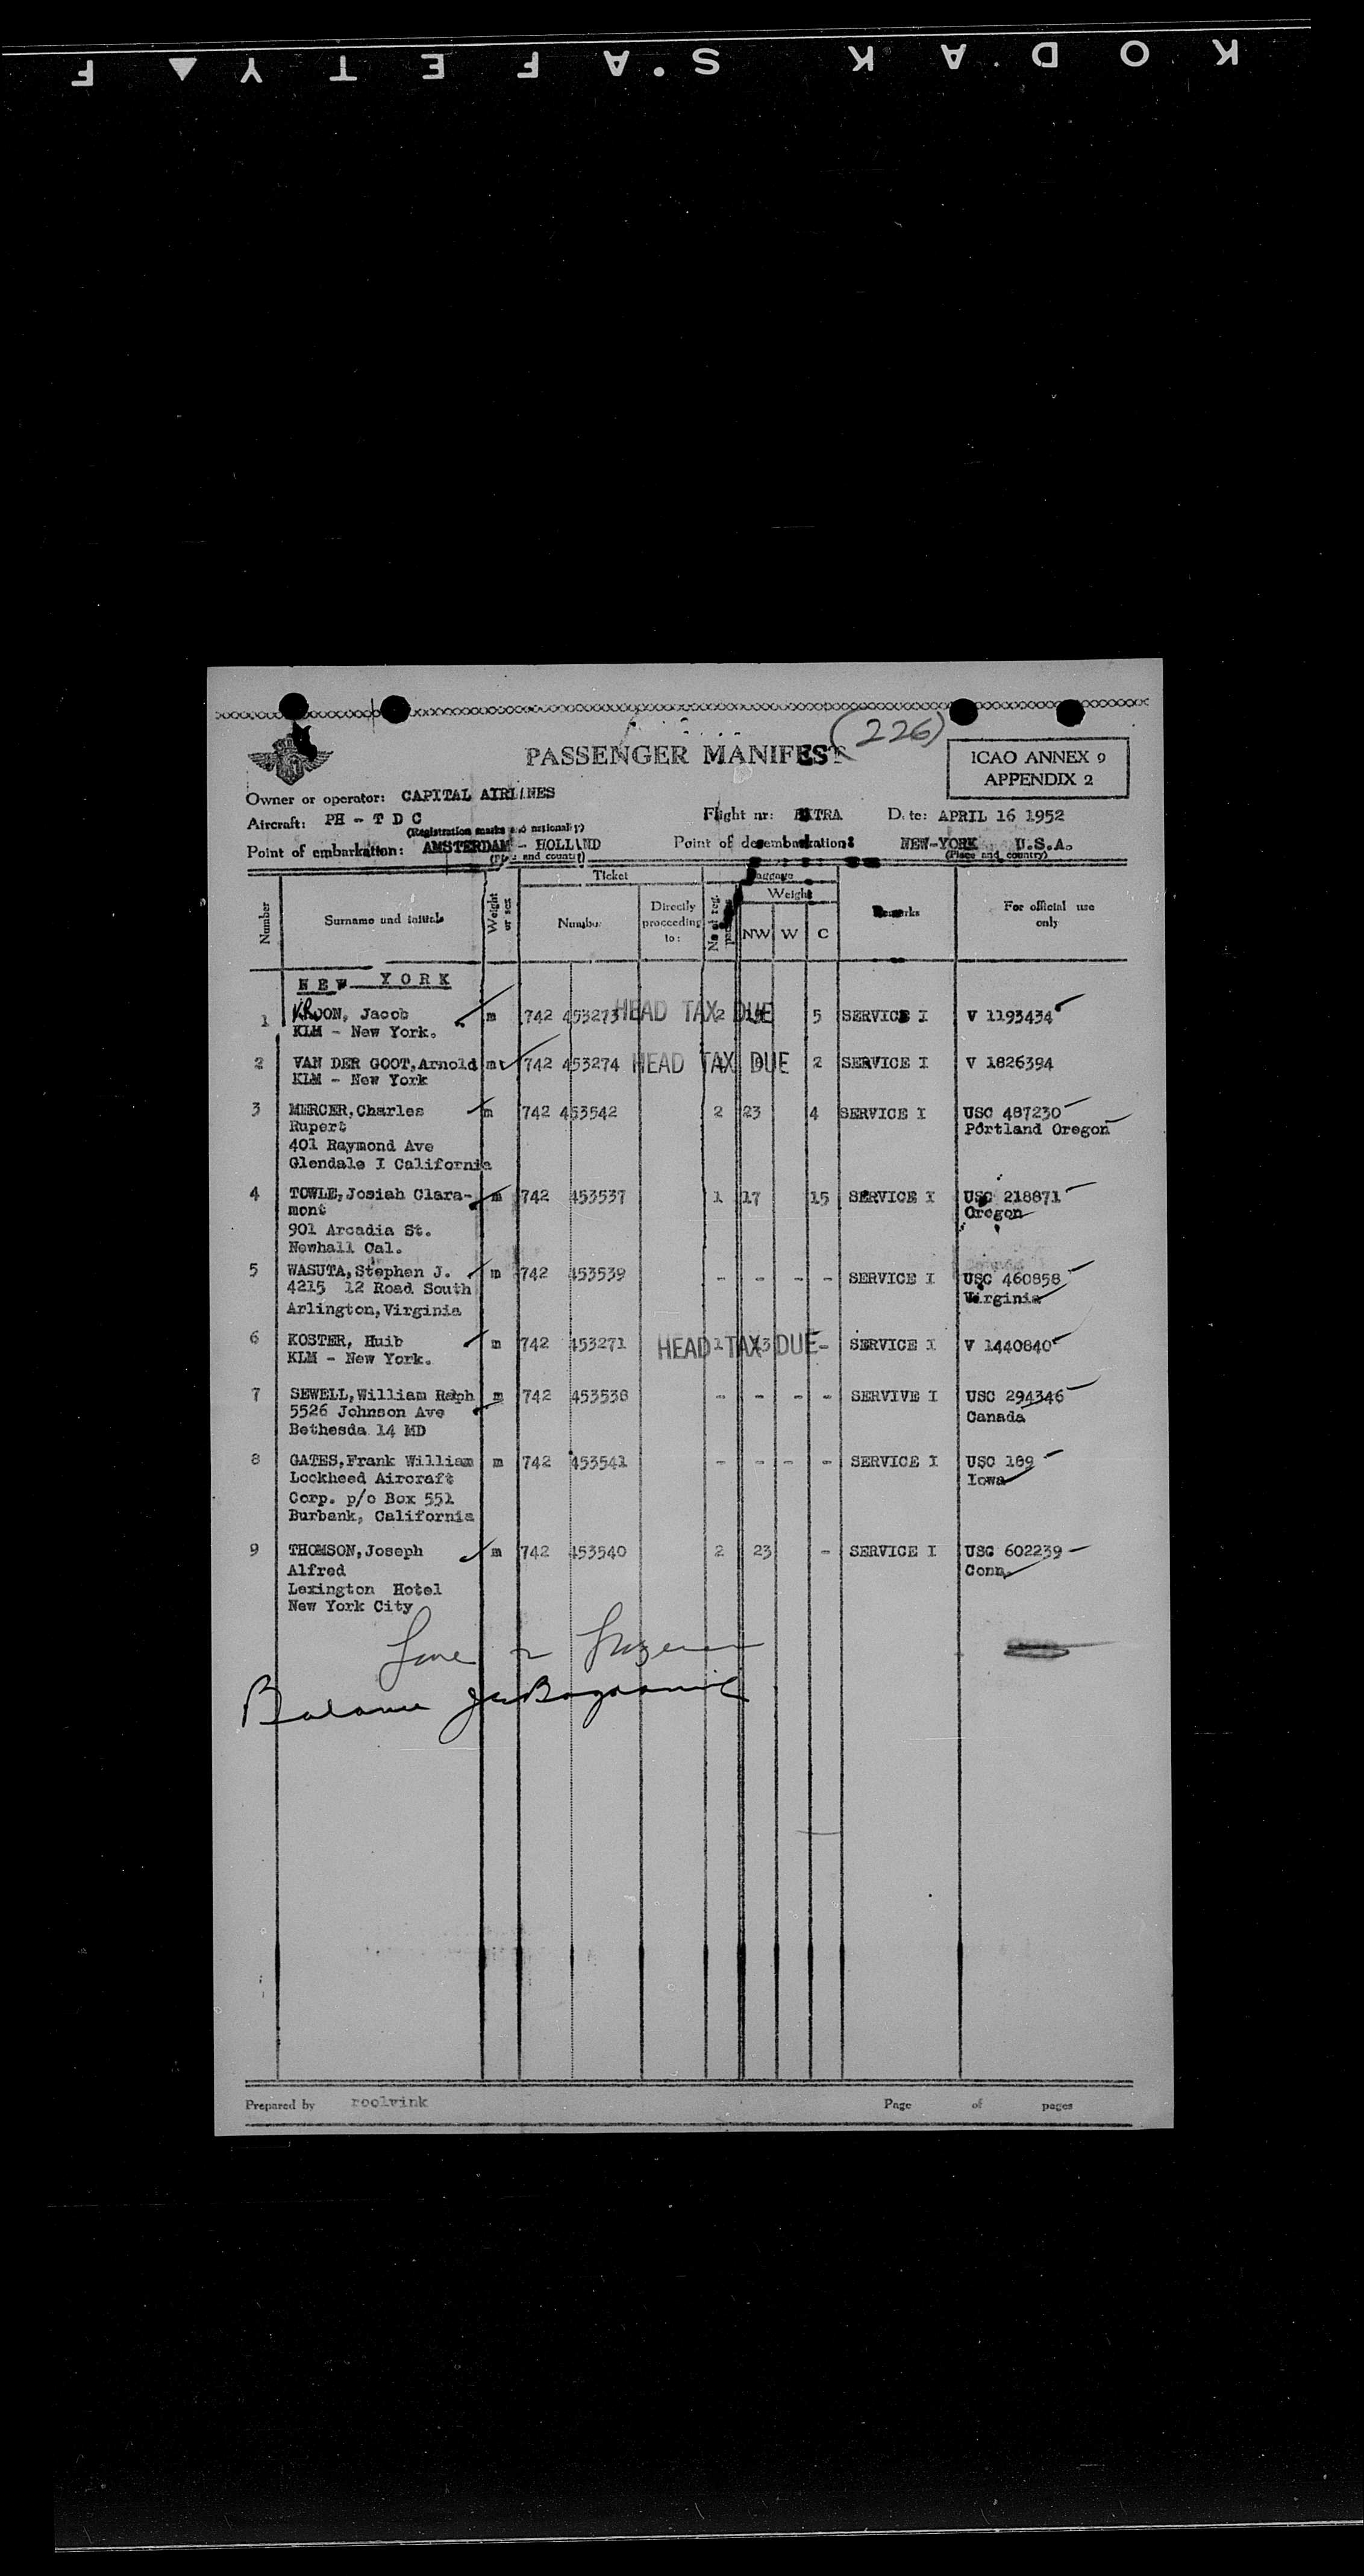 KODAK S.AFETY ▲ F
(226)
PASSENGER MANIFEST
ICAO ANNEX 9
APPENDIX 2
Owner or operator: CAPITAL AIRLINES
Aircraft: PH - T D C Flight nr: EXTRA Date: APRIL 16 1952
(Registration marks and nationality)
Point of embarkation: AMSTERDAM - HOLLAND Point of desembarkation: NEW-YORK U.S.A.
(Place and country) (Place and country)
Number Surname and initials Weight or sex Ticket Number Directly proceeding to: Baggage No of reg. Weight NW W C Remarks For official use only
NEW YORK
1 KROON, Jacob m 742 453273 HEAD TAX DUE 2 5 SERVICE I V 1193434
KLM - New York.
2 VAN DER GOOT, Arnold m 742 453274 HEAD TAX DUE 2 SERVICE I V 1826394
KLM - New York
3 MERCER, Charles m 742 453542 2 23 4 SERVICE I USC 487230
Rupert Portland Oregon
401 Raymond Ave
Glendale I California
4 TOWLE, Josiah Clara- m 742 453537 1 17 15 SERVICE I USC 218871
mont Oregon
901 Arcadia St.
Newhall Cal.
5 WASUTA, Stephen J. m 742 453539 - - - - SERVICE I USC 460858
4215 12 Road South Virginia
Arlington, Virginia
6 KOSTER, Huib m 742 453271 HEAD TAX DUE 1 3 - SERVICE I V 1440840
KLM - New York.
7 SEWELL, William Raph m 742 453538 - - - - SERVIVE I USC 294346
5526 Johnson Ave Canada
Bethesda 14 MD
8 GATES, Frank William m 742 453541 - - - - SERVICE I USC 189
Lockheed Aircraft Iowa
Corp. p/o Box 551
Burbank, California
9 THOMSON, Joseph m 742 453540 2 23 - SERVICE I USC 602239
Alfred Conn.
Lexington Hotel
New York City
Prepared by roolvink Page of pages